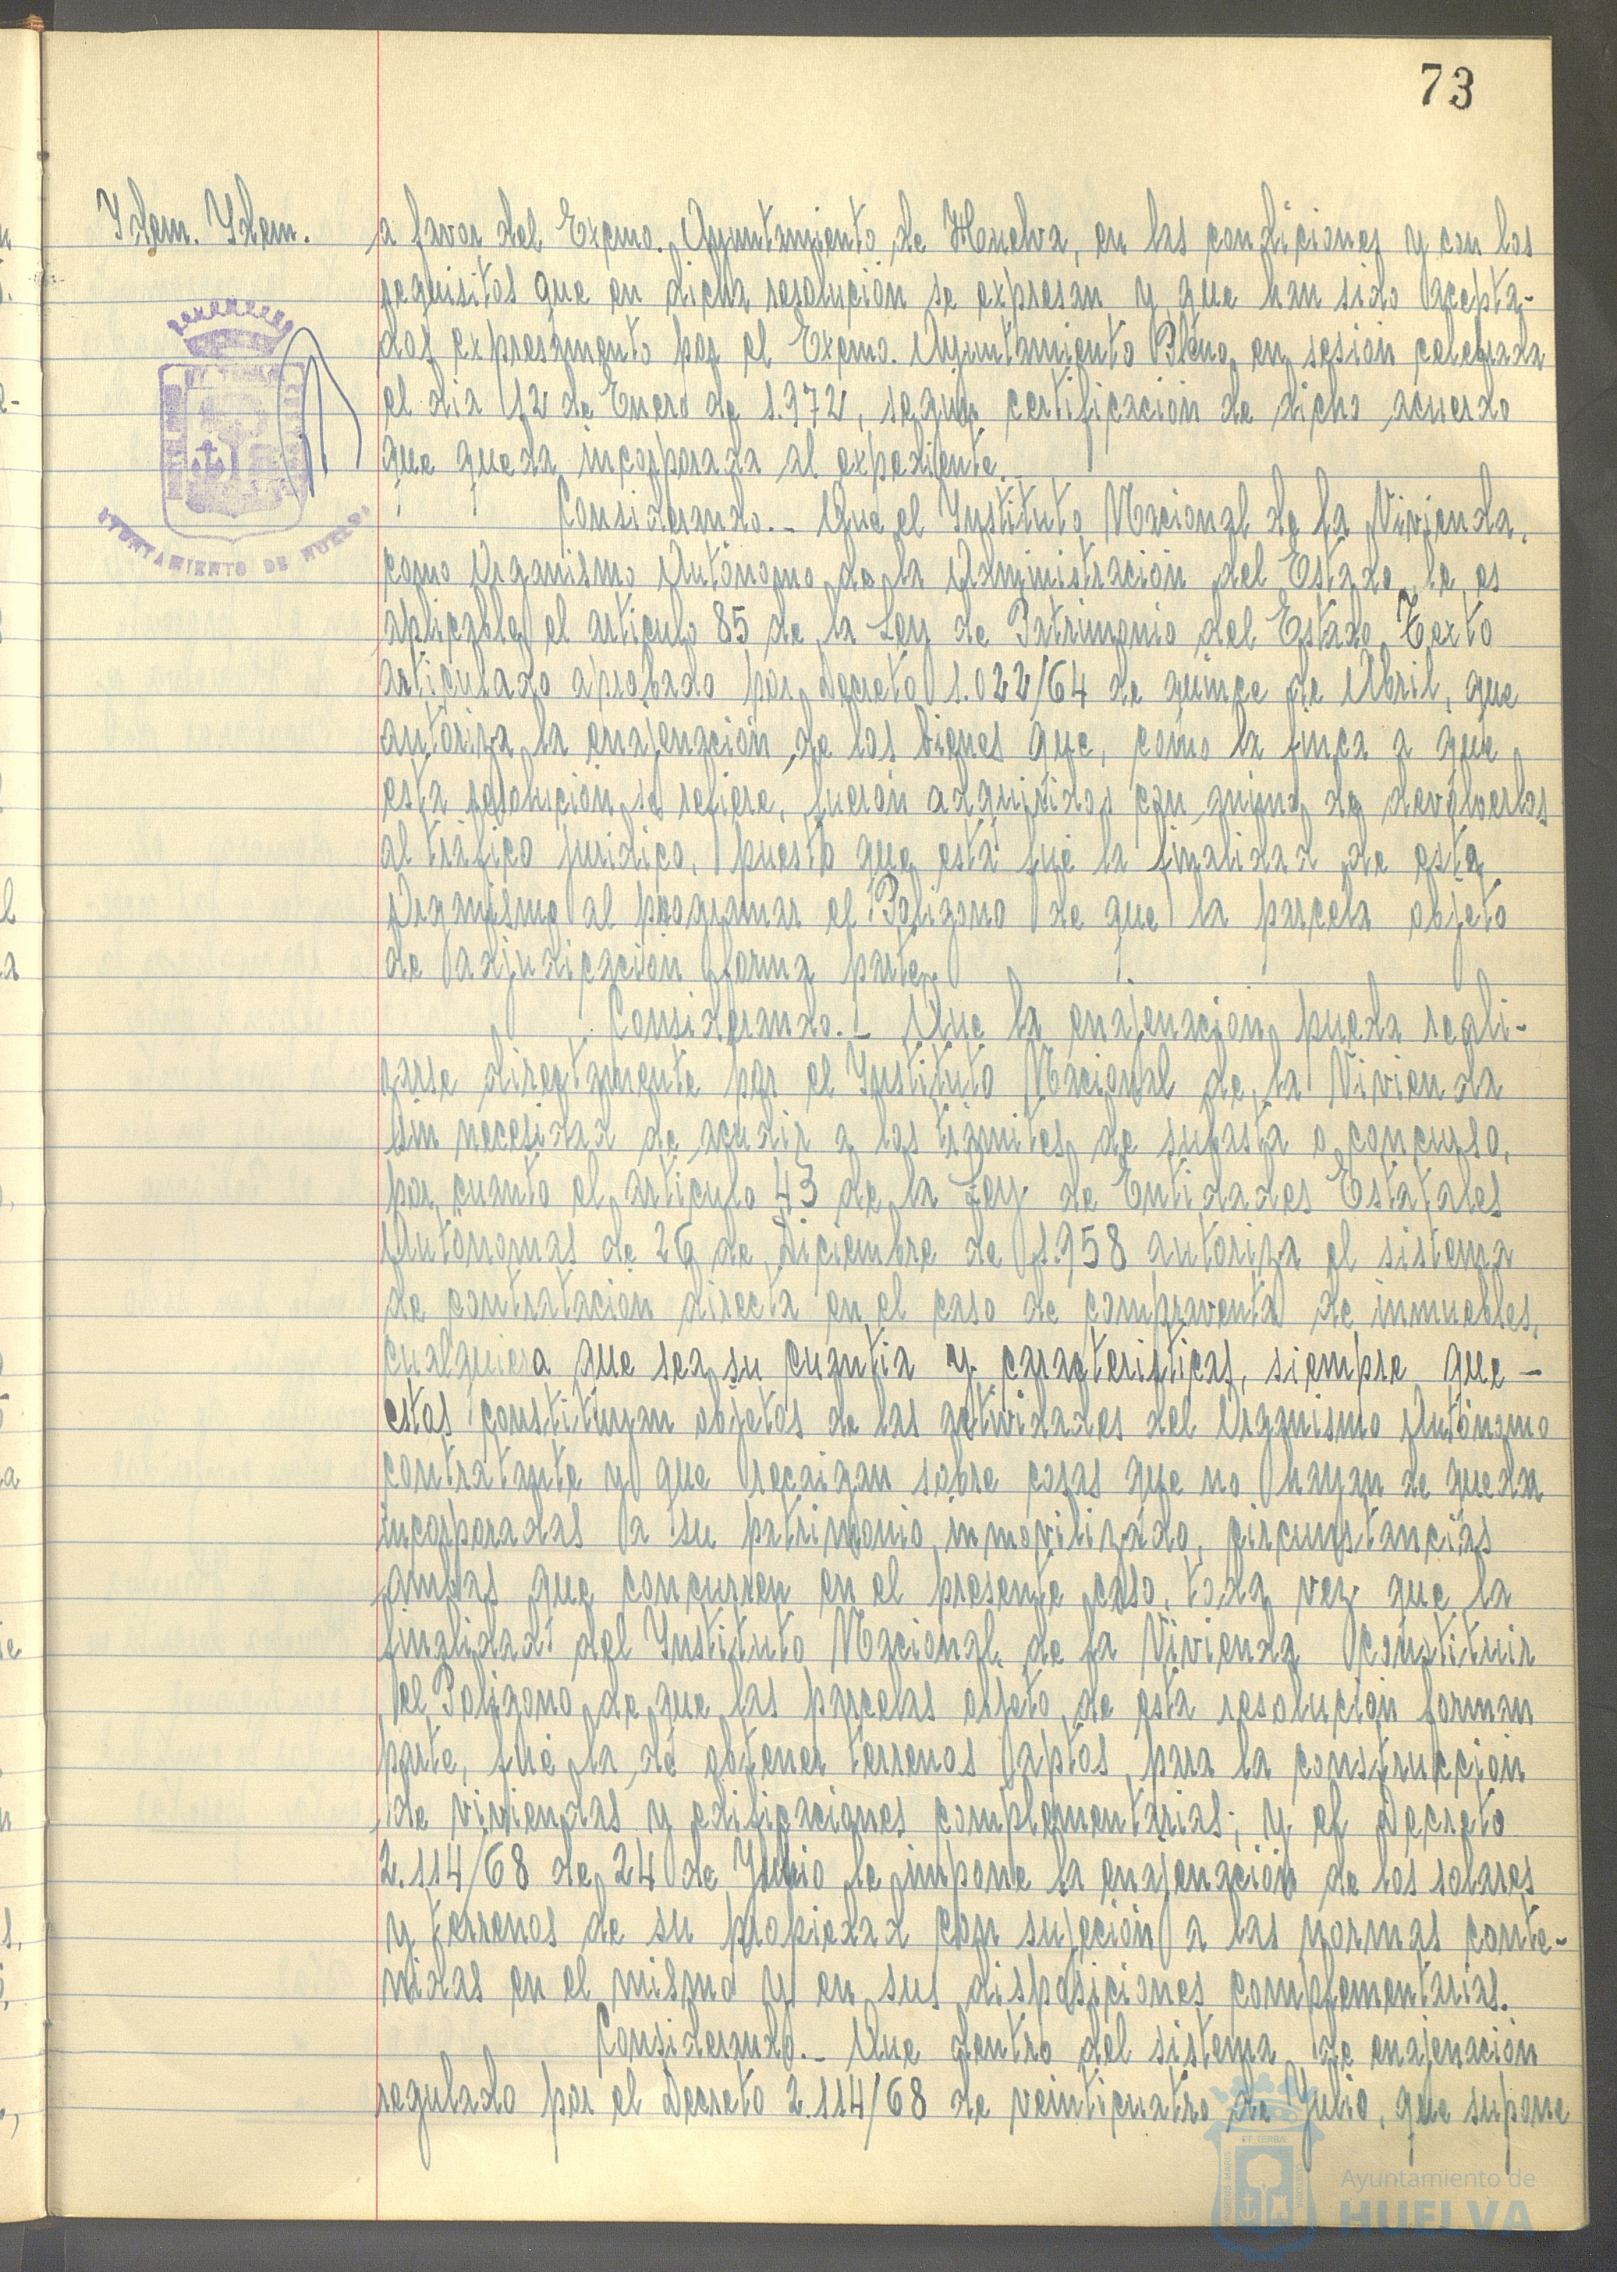 73
Ydem. Ydem.
a favor del Excmo. Ayuntamiento de Huelva, en las condiciones y con los
requisitos que en dicha resolución se expresan y que han sido acepta-
dos expresamente por el Excmo. Ayuntamiento Pleno, en sesión celebrada
el dia 12 de Enero de 1.972, según certificación de dicho acuerdo
que queda incorporada al expediente.
Considerando.- Que el Ynstituto Nacional de la Vivienda,
como Organismo Autónomo de la Administración del Estado, le es
aplicable el articulo 85 de la Ley de Patrimonio del Estado, Texto
articulado aprobado por Decreto 1.022/64 de quince de Abril, que
autoriza la enajenación de los bienes que, como la finca a que
esta resolución se refiere, fueron adquiridos con animo de devolverlos
al tráfico juridico, puesto que esta fué la finalidad de este
Organismo al programar el Poligono de que la parcela objeto
de adjudicación forma parte.
Considerando.- Que la enajenación pueda reali-
zarse directamente por el Ynstituto Nacional de la Vivienda
sin necesidad de acudir a los trámites de subasta o concurso,
por cuanto el articulo 43 de la Ley de Entidades Estatales
Autónomas de 26 de Diciembre de 1.958 autoriza el sistema
de contratación directa en el caso de compraventa de inmuebles,
cualquiera que sea su cuantia y caracteristicas, siempre que -
estos constituyan objetos de las actividades del Organismo Autónomo
contratante y que recaigan sobre cosas que no hayan de quedar
incorporadas a su patrimonio inmovilizado, circunstancias
ambas que concurren en el presente caso, toda vez que la
finalidad del Ynstituto Nacional de la Vivienda constituir
el Poligono de que las parcelas objeto de esta resolución forman
parte, fué la de obtener terrenos aptos para la construcción
de viviendas y edificaciones complementarias; y el Decreto
2.114/68 de 24 de Julio le impone la enajenación de los solares
y terrenos de su propiedad con sujeción a las normas conte-
nidas en el mismo y en sus disposiciones complementarias.
Considerando.- Que dentro del sistema de enajenación
regulado por el Decreto 2.114/68 de veinticuatro de Julio, que supone
AYUNTAMIENTO DE HUELVA
Ayuntamiento de
HUELVA